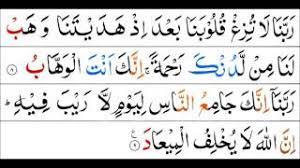 رَبَّنَا لَا تُزِغْ قُلُوْبَنَا بَعْدَ اِذْ هَدَيْتَنَا وَهَبْ
لَنَا مِنْ لَّدُنْكَ رَحْمَةً ۚ اِنَّكَ اَنْتَ الْوَهَّابُ ۸
رَبَّنَاۤ اِنَّكَ جَامِعُ النَّاسِ لِيَوْمٍ لَّا رَيْبَ فِيْهِ ؕ
اِنَّ اللّٰهَ لَا يُخْلِفُ الْمِيْعَادَ ۹